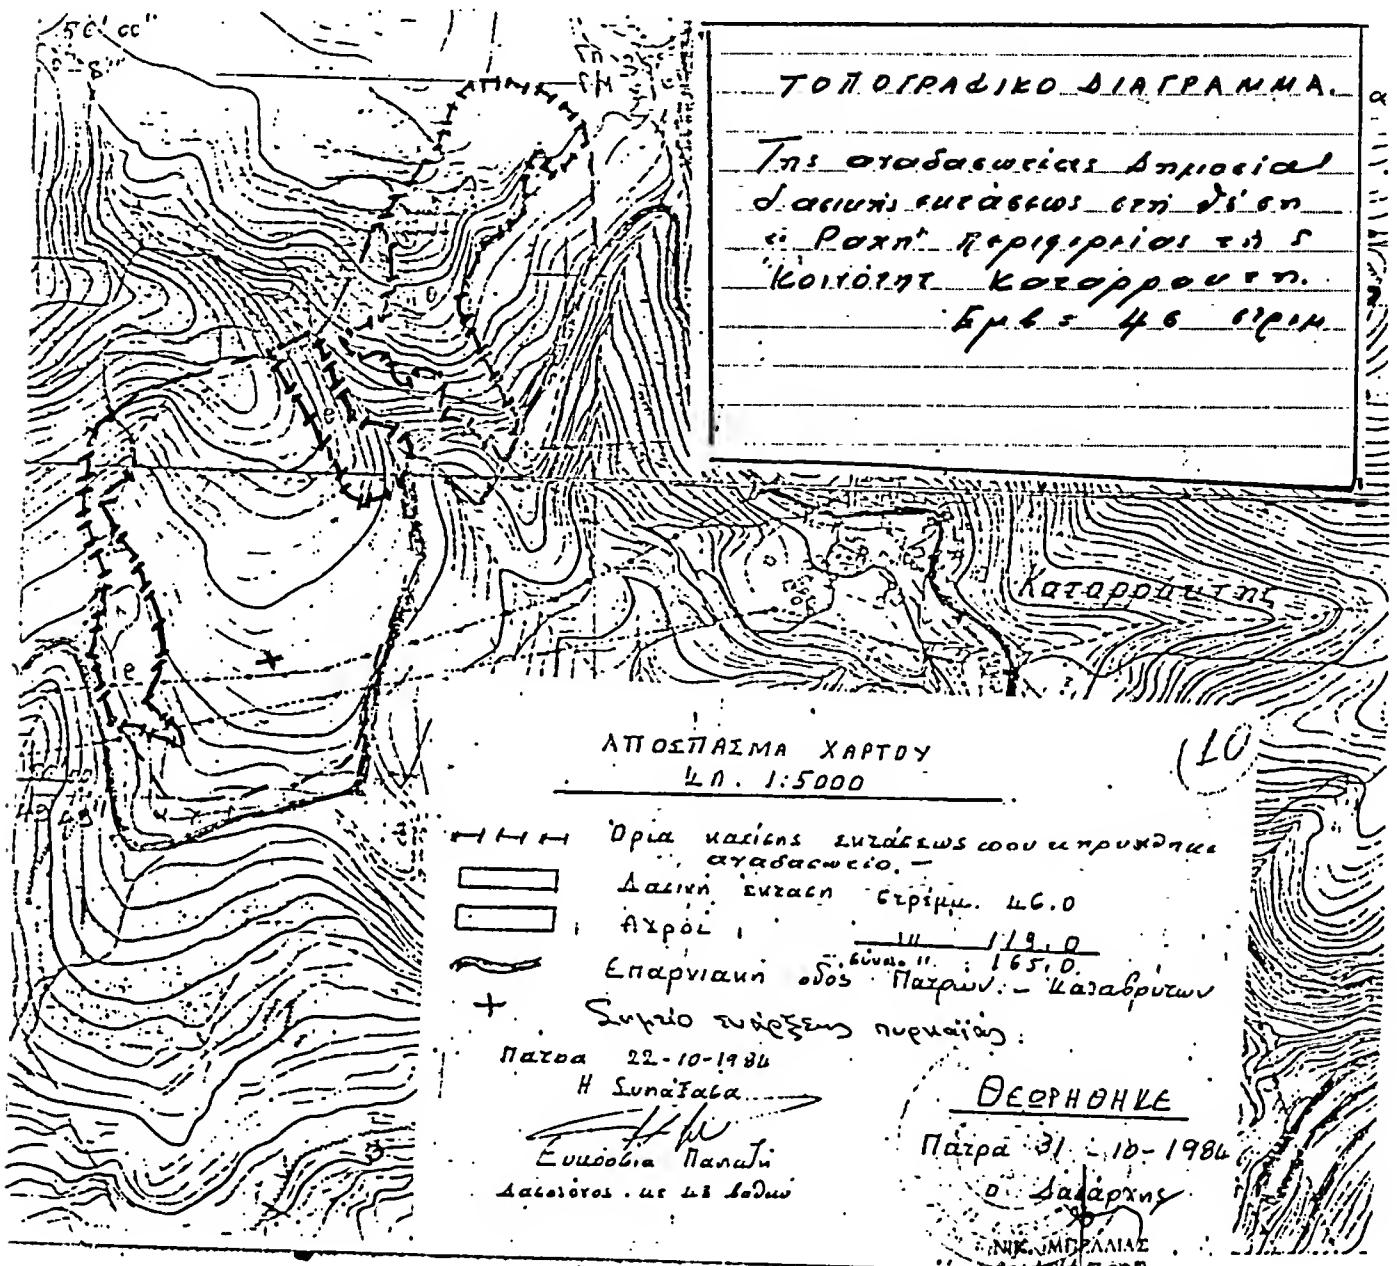 ΤΟΠΟΓΡΑΦΙΚΟ ΔΙΑΓΡΑΜΜΑ.
Της αναδασώσεως Δημοσίας
δασικής εκτάσεως στη θέση
"Ραχη" περιφερείας της
Κοινότητ Καταρραυτη.
Εμβ = 46 στρεμ
Καταρραύτης
ΑΠΟΣΠΑΣΜΑ ΧΑΡΤΟΥ
ΚΛ. 1:5000
(10)
Όρια καείσης εκτάσεως που κηρύχθηκε
αναδασωτέα.-
Δασική έκταση στρέμμ. 46.0
Αγροί " 119.0
Σύνολ. " 165.0
Επαρχιακή οδός Πατρών - Καλαβρύτων
+ Σημείο ενάρξεως πυρκαϊάς.
Πάτρα 22-10-1984
Η Συντάξασα
Δασολόγος με 4ο βαθμό
ΘΕΩΡΗΘΗΚΕ
Πάτρα 31-10-1984
ο Δασάρχης
ΝΙΚ. ΜΠΡΑΛΙΑΣ